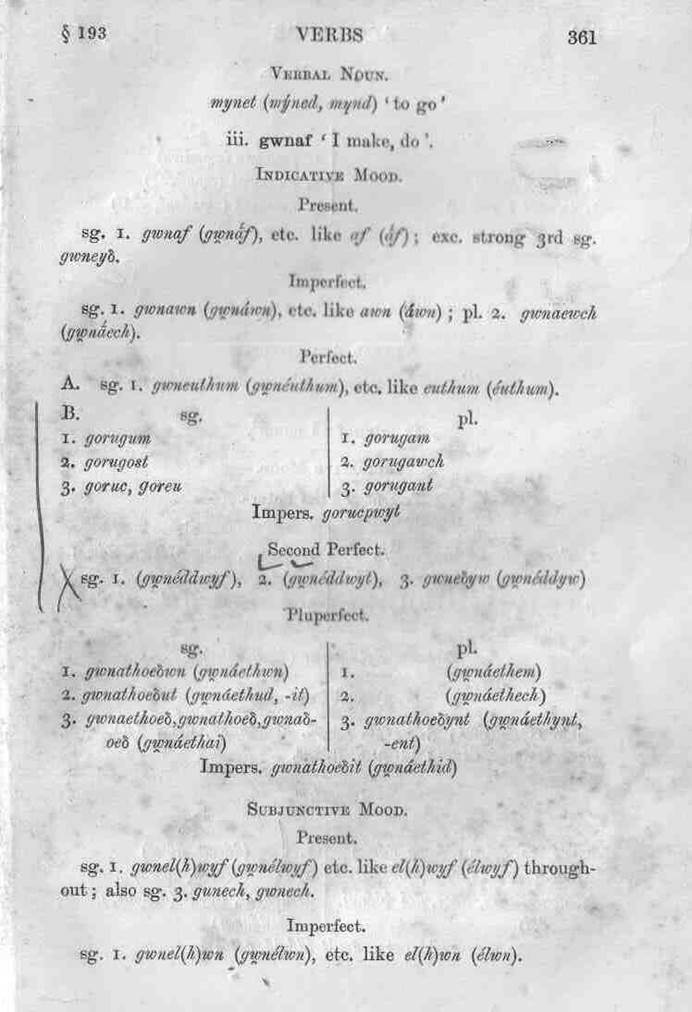 § 193 VERBS 361
VERBAL NOUN.
mynet (mýned, mynd) ‘to go’
iii. gwnaf ‘I make, do’.
INDICATIVE MOOD.
Present.
sg. 1. gwnaf (gw̯nā́f), etc. like af (ā́f); exc. strong 3rd sg.
gwneyδ.
Imperfect.
sg. 1. gwnawn (gw̯náwn), etc. like awn (áwn); pl. 2. gwnaewch
(gw̯nā́ech).
Perfect.
A. sg. 1. gwneuthum (gw̯néuthum), etc. like euthum (éuthum).
B. sg. pl.
1. gorugum 1. gorugam
2. gorugost 2. gorugawch
3. goruc, goreu 3. gorugant
Impers. gorucpwyt
Second Perfect.
sg. 1. (gw̯néddwyf), 2. (gw̯néddwyt), 3. gwneδyw (gw̯néddyw)
Pluperfect.
sg. pl.
1. gwnathoeδwn (gw̯náethwn) 1. (gw̯náethem)
2. gwnathoeδut (gw̯náethud, -it) 2. (gw̯náethech)
3. gwnaethoeδ, gwnathoeδ, gwnaδ- 3. gwnathoeδynt (gw̯náethynt,
oeδ (gw̯náethai) -ent)
Impers. gwnathoeδit (gw̯náethid)
SUBJUNCTIVE MOOD.
Present.
sg. 1. gwnel(h)wyf (gw̯nélwyf) etc. like el(h)wyf (élwyf) through-
out; also sg. 3. gunech, gwnech.
Imperfect.
sg. 1. gwnel(h)wn (gw̯nélwn), etc. like el(h)wn (élwn).